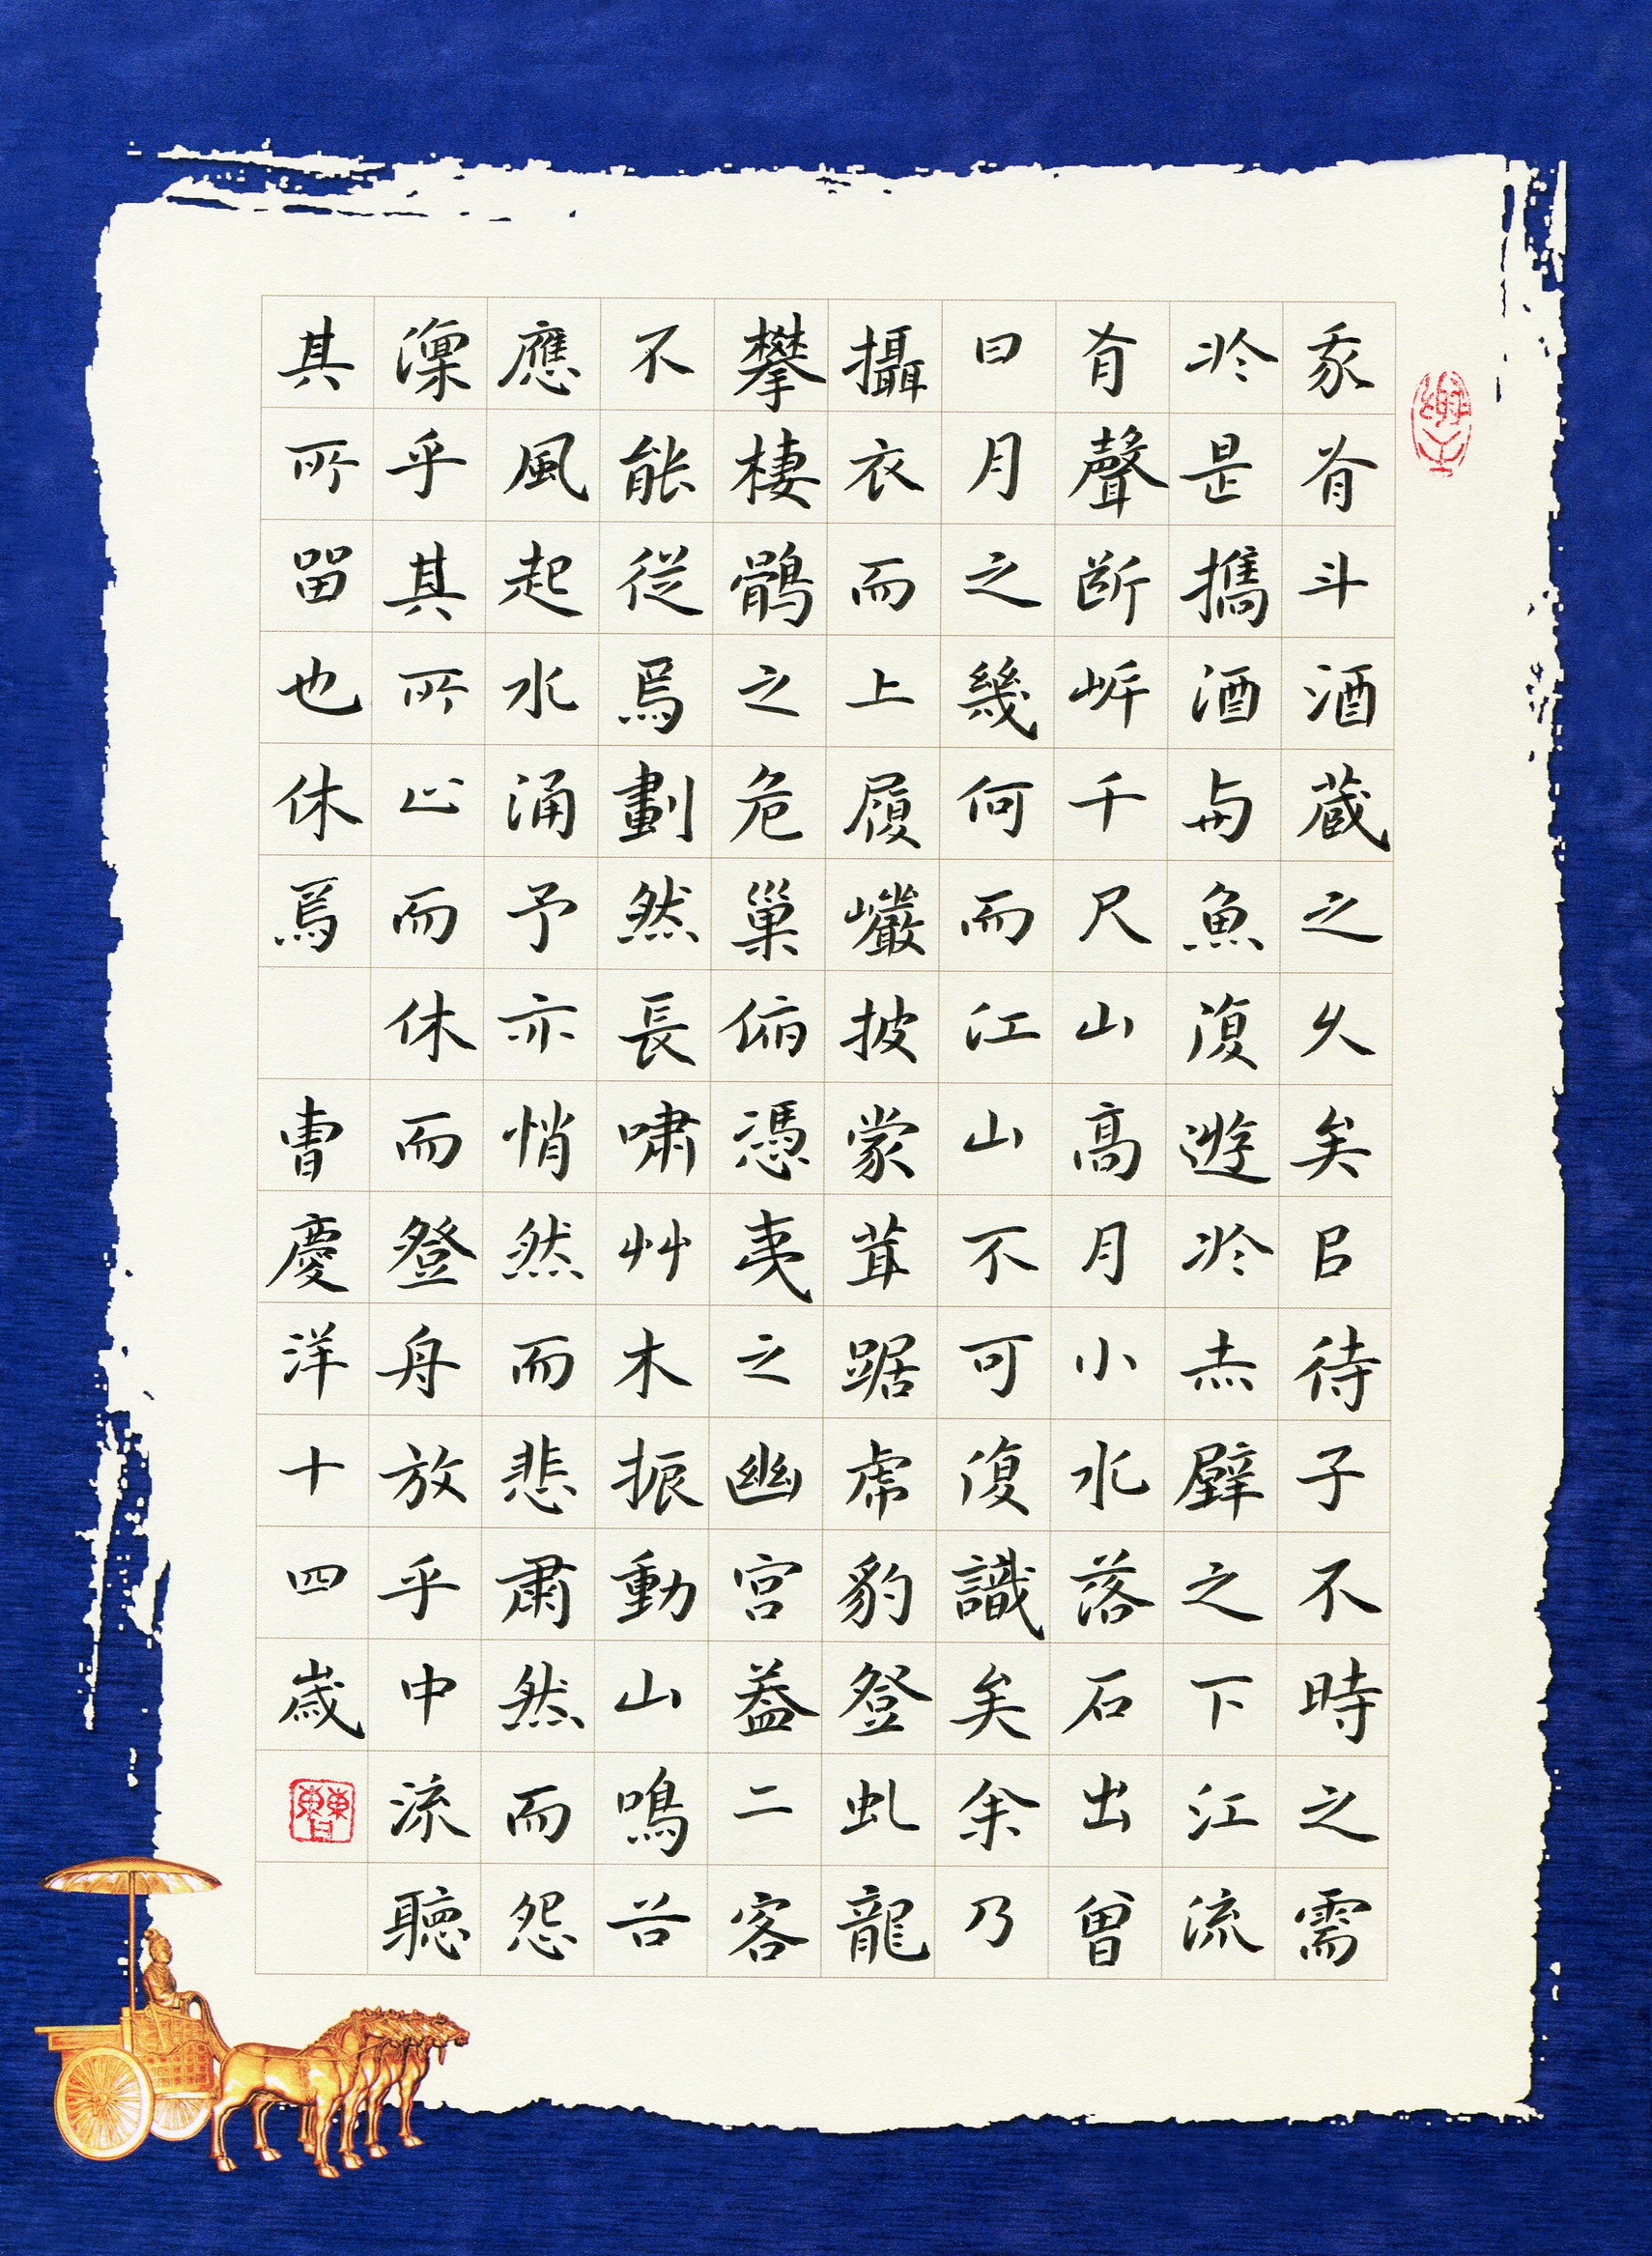 我有斗酒藏之久矣㠯待子不時之需
於是攜酒与魚復遊於赤壁之下江流
有聲断岸千尺山高月小水落石出曾
日月之幾何而江山不可復識矣余乃
攝衣而上履巉披蒙茸踞虎豹登虬龍
攀棲鶻之危巢俯馮夷之幽宮蓋二客
不能從焉劃然長嘯艸木振動山鳴谷
應風起水涌予亦悄然而悲肅然而恐
凜乎其所止而休而登舟放乎中流聽
其所留也休焉 曹慶洋十四歲